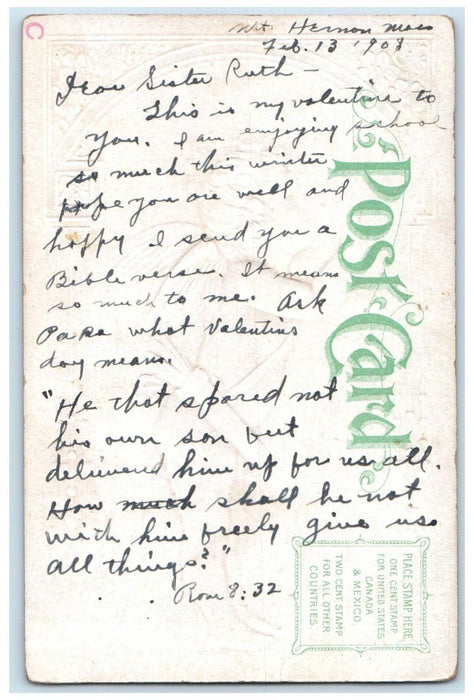 Mt. Hermon Mass
Feb. 13 1908
Dear Sister Ruth —
This is my valentine to
you. I am enjoying school
so much this winter
hope you are well and
happy I send you a
Bible verse. It means
so much to me. Ask
Papa what Valentins
day means.
"He that spared not
his own son but
delivered him up for us all.
How much shall he not
with him freely give us
all things?"
Rom 8:32
Post Card
PLACE STAMP HERE
ONE CENT STAMP
FOR UNITED STATES
CANADA
& MEXICO.
TWO CENT STAMP
FOR ALL OTHER
COUNTRIES